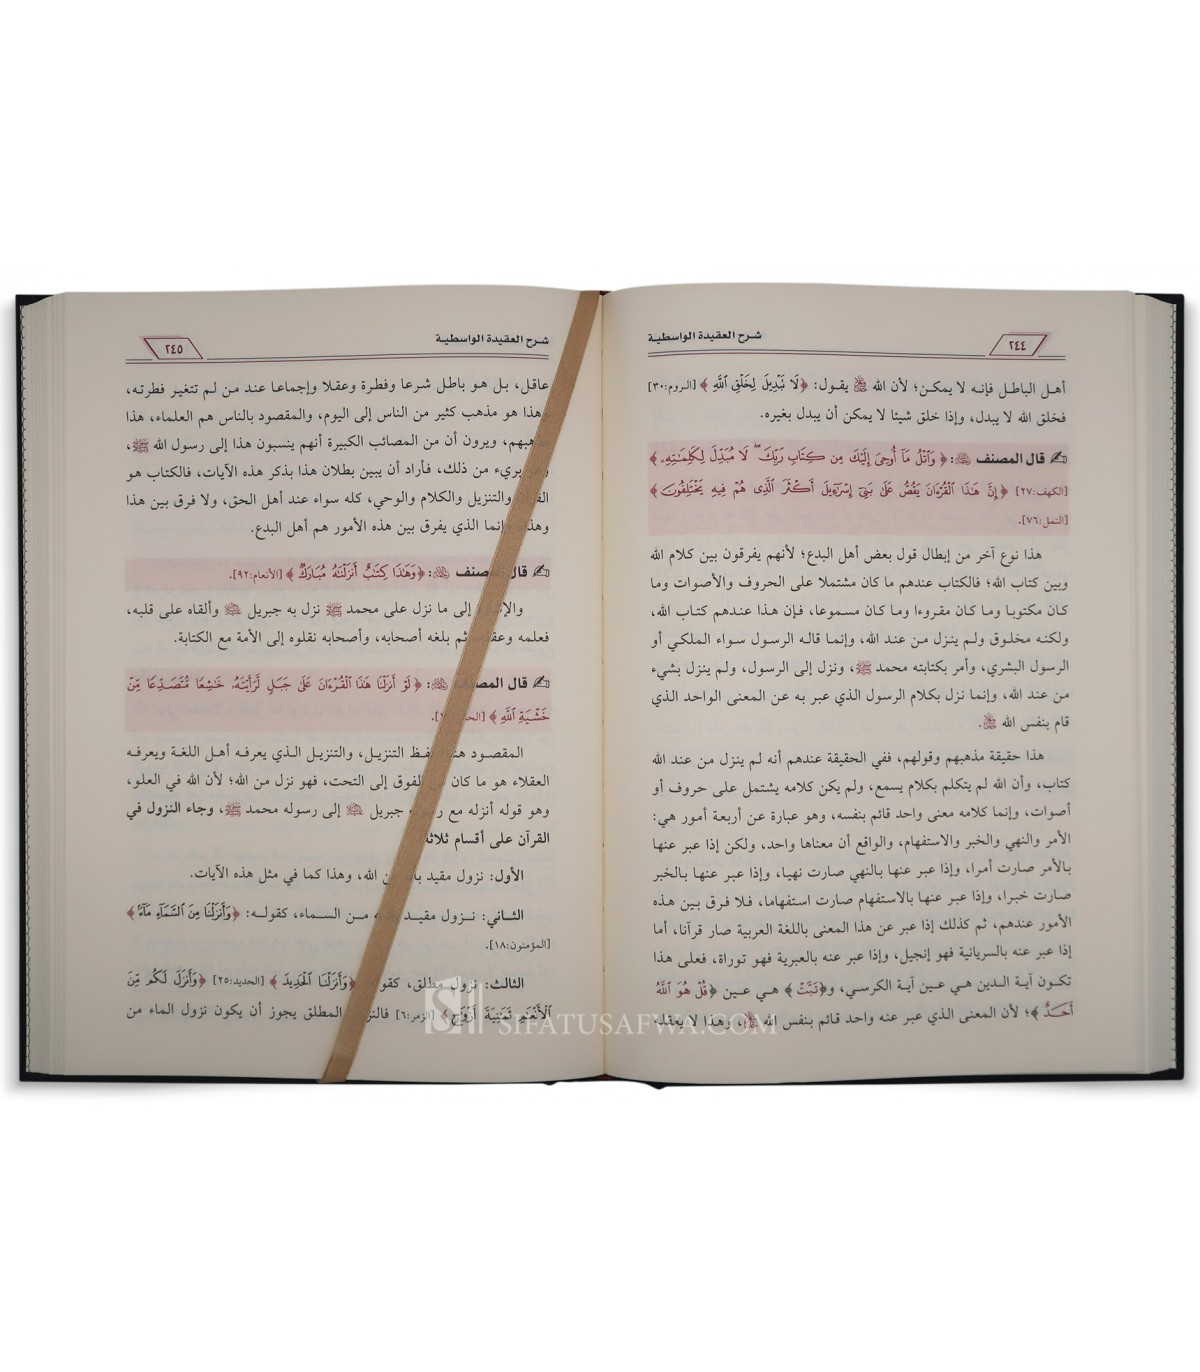 ٢٤٤
شرح العقيدة الواسطية
أهل الباطل فإنه لا يمكن؛ لأن الله ﷻ يقول: ﴿لَا تَبْدِيلَ لِخَلْقِ اللَّهِ﴾ [الروم:٣٠]
فخلق الله لا يبدل، وإذا خلق شيئا لا يمكن أن يبدل بغيره.
قال المصنف: ﴿وَاتْلُ مَا أُوحِيَ إِلَيْكَ مِن كِتَابِ رَبِّكَ ۖ لَا مُبَدِّلَ لِكَلِمَاتِهِ﴾
[الكهف:٢٧] ﴿إِنَّ هَٰذَا الْقُرْءَانَ يَقُصُّ عَلَىٰ بَنِي إِسْرَاءِيلَ أَكْثَرَ الَّذِي هُمْ فِيهِ يَخْتَلِفُونَ﴾
[النمل:٧٦].
هذا نوع آخر من إبطال قول بعض أهل البدع؛ لأنهم يفرقون بين كلام الله
وبين كتاب الله؛ فالكتاب عندهم ما كان مشتملا على الحروف والأصوات وما
كان مكتوبا وما كان مقروءا وما كان مسموعا، فإن هذا عندهم كتاب الله،
ولكنه مخلوق ولم ينزل من عند الله، وإنما قاله الرسول سواء الملكي أو
الرسول البشري، وأمر بكتابته محمد ﷺ، ونزل إلى الرسول، ولم ينزل بشيء
من عند الله، وإنما نزل بكلام الرسول الذي عبر به عن المعنى الواحد الذي
قام بنفس الله ﷻ.
هذا حقيقة مذهبهم وقولهم، ففي الحقيقة عندهم أنه لم ينزل من عند الله
كتاب، وأن الله لم يتكلم بكلام يسمع، ولم يكن كلامه يشتمل على حروف أو
أصوات، وإنما كلامه معنى واحد قائم بنفسه، وهو عبارة عن أربعة أمور هي:
الأمر والنهي والخبر والاستفهام، والواقع أن معناها واحد، ولكن إذا عبر عنها
بالأمر صارت أمرا، وإذا عبر عنها بالنهي صارت نهيا، وإذا عبر عنها بالخبر
صارت خبرا، وإذا عبر عنها بالاستفهام صارت استفهاما، فلا فرق بين هذه
الأمور عندهم، ثم كذلك إذا عبر عن هذا المعنى باللغة العربية صار قرآنا، أما
إذا عبر عنه بالسريانية فهو إنجيل، وإذا عبر عنه بالعبرية فهو توراة، فعلى هذا
تكون آية الدين هي عين آية الكرسي، و﴿تَبَّتْ﴾ هي عين ﴿قُلْ هُوَ اللَّهُ
أَحَدٌ﴾؛ لأن المعنى الذي عبر عنه واحد قائم بنفس الله ﷻ، وهذا لا يعقله
شرح العقيدة الواسطية
٢٤٥
عاقل، بل هو باطل شرعا وفطرة وعقلا وإجماعا عند من لم تتغير فطرته،
وهذا هو مذهب كثير من الناس إلى اليوم، والمقصود بالناس هم العلماء، هذا
مذهبهم، ويرون أن من المصائب الكبيرة أنهم ينسبون هذا إلى رسول الله ﷺ،
وهو بريء من ذلك، فأراد أن يبين بطلان هذا بذكر هذه الآيات، فالكتاب هو
القرآن والتنزيل والكلام والوحي، كله سواء عند أهل الحق، ولا فرق بين هذا
وهذا، وإنما الذي يفرق بين هذه الأمور هم أهل البدع.
قال المصنف: ﴿وَهَٰذَا كِتَابٌ أَنزَلْنَاهُ مُبَارَكٌ﴾ [الأنعام:٩٢].
إلى ما نزل على محمد ﷺ نزل به جبريل وألقاه على قلبه،
فعلمه وعقله، ثم بلغه أصحابه، وأصحابه نقلوه إلى الأمة مع الكتابة.
قال المصنف: ﴿لَوْ أَنزَلْنَا هَٰذَا الْقُرْءَانَ عَلَىٰ جَبَلٍ لَّرَأَيْتَهُ خَاشِعًا مُّتَصَدِّعًا مِّنْ
خَشْيَةِ اللَّهِ﴾
المقصود هنا لفظ التنزيل، والتنزيل الذي يعرفه أهل اللغة ويعرفه
العقلاء هو ما كان من الفوق إلى التحت، فهو نزل من الله؛ لأن الله في العلو،
وهو قوله أنزله مع رسوله جبريل إلى رسوله محمد ﷺ، وجاء النزول في
القرآن على أقسام ثلاثة
الأول: نزول مقيد بأنه من الله، وهذا كما في مثل هذه الآيات.
الثاني: نزول مقيد بأنه من السماء، كقوله: ﴿وَأَنزَلْنَا مِنَ السَّمَاءِ مَاءً﴾
[المؤمنون:١٨].
الثالث: نزول مطلق، كقوله ﴿وَأَنزَلْنَا الْحَدِيدَ﴾ [الحديد:٢٥] ﴿وَأَنزَلَ لَكُم مِّنَ
الْأَنْعَامِ ثَمَانِيَةَ أَزْوَاجٍ﴾ [الزمر:٦] فالنزول المطلق يجوز أن يكون نزول الماء من
SIFATUSAFWA.COM